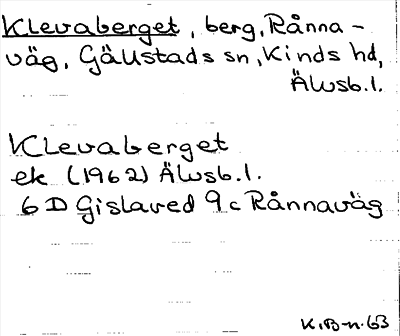 Klevaberget, berg, Rånna-
väg, Gällstads sn, Kinds hd,
Älvsb.l.
Klevaberget
ek (1962) Älvsb.l.
6 D Gislaved 9 c Rånnaväg
K.B-n. 63